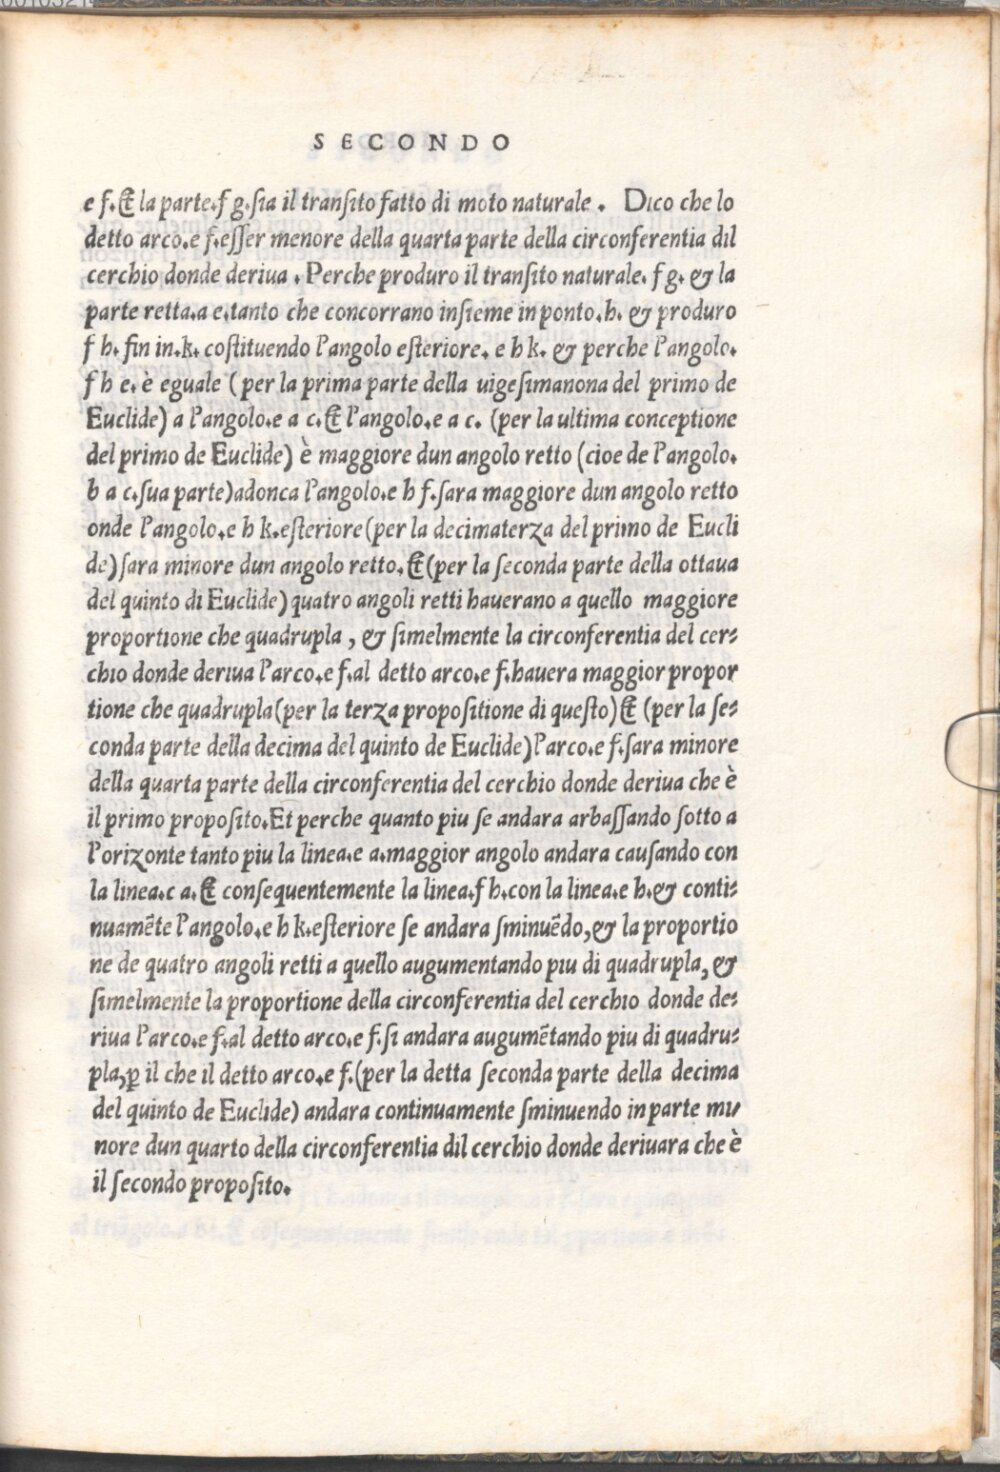 SECONDO
e f. & la parte.f g.sia il transito fatto di moto naturale . Dico che lo
detto arco.e f.esser menore della quarta parte della circonferentia dil
cerchio donde deriva . Perche produro il transito naturale. f g. & la
parte retta.a e.tanto che concorrano insieme in ponto.h. & produro
f h. fin in.k. costituendo l'angolo esteriore. e h k. & perche l'angolo.
f h e. è eguale ( per la prima parte della uigesimanona del primo de
Euclide) a l'angolo.e a c.& l'angolo.e a c. (per la ultima conceptione
del primo de Euclide) è maggiore dun angolo retto (cioe de l'angolo.
b a c.sua parte)adonca l'angolo.e h f.sara maggiore dun angolo retto
onde l'angolo.e h k.esteriore(per la decimaterza del primo de Eucli
de)sara minore dun angolo retto.&(per la seconda parte della ottaua
del quinto di Euclide)quatro angoli retti hauerano a quello maggiore
proportione che quadrupla , & simelmente la circonferentia del cer:
chio donde deriua l'arco.e f.al detto arco.e f.hauera maggior propor
tione che quadrupla(per la terza propositione di questo)& (per la se:
conda parte della decima del quinto de Euclide)l'arco.e f.sara minore
della quarta parte della circonferentia del cerchio donde deriua che è
il primo proposito.Et perche quanto piu se andara arbassando sotto a
l'orizonte tanto piu la linea.e a.maggior angolo andara causando con
la linea.c a.& consequentemente la linea.f h.con la linea.e h.& conti:
nuamẽte l'angolo.e h k.esteriore se andara sminuẽdo,& la proportio
ne de quatro angoli retti a quello augumentando piu di quadrupla, &
simelmente la proportione della circonferentia del cerchio donde de:
riua l'arco.e f.al detto arco.e f.si andara augumẽtando piu di quadru:
pla,ꝑ il che il detto arco.e f.(per la detta seconda parte della decima
del quinto de Euclide) andara continuamente sminuendo in parte mi
nore dun quarto della circonferentia dil cerchio donde deriuara che è
il secondo proposito.